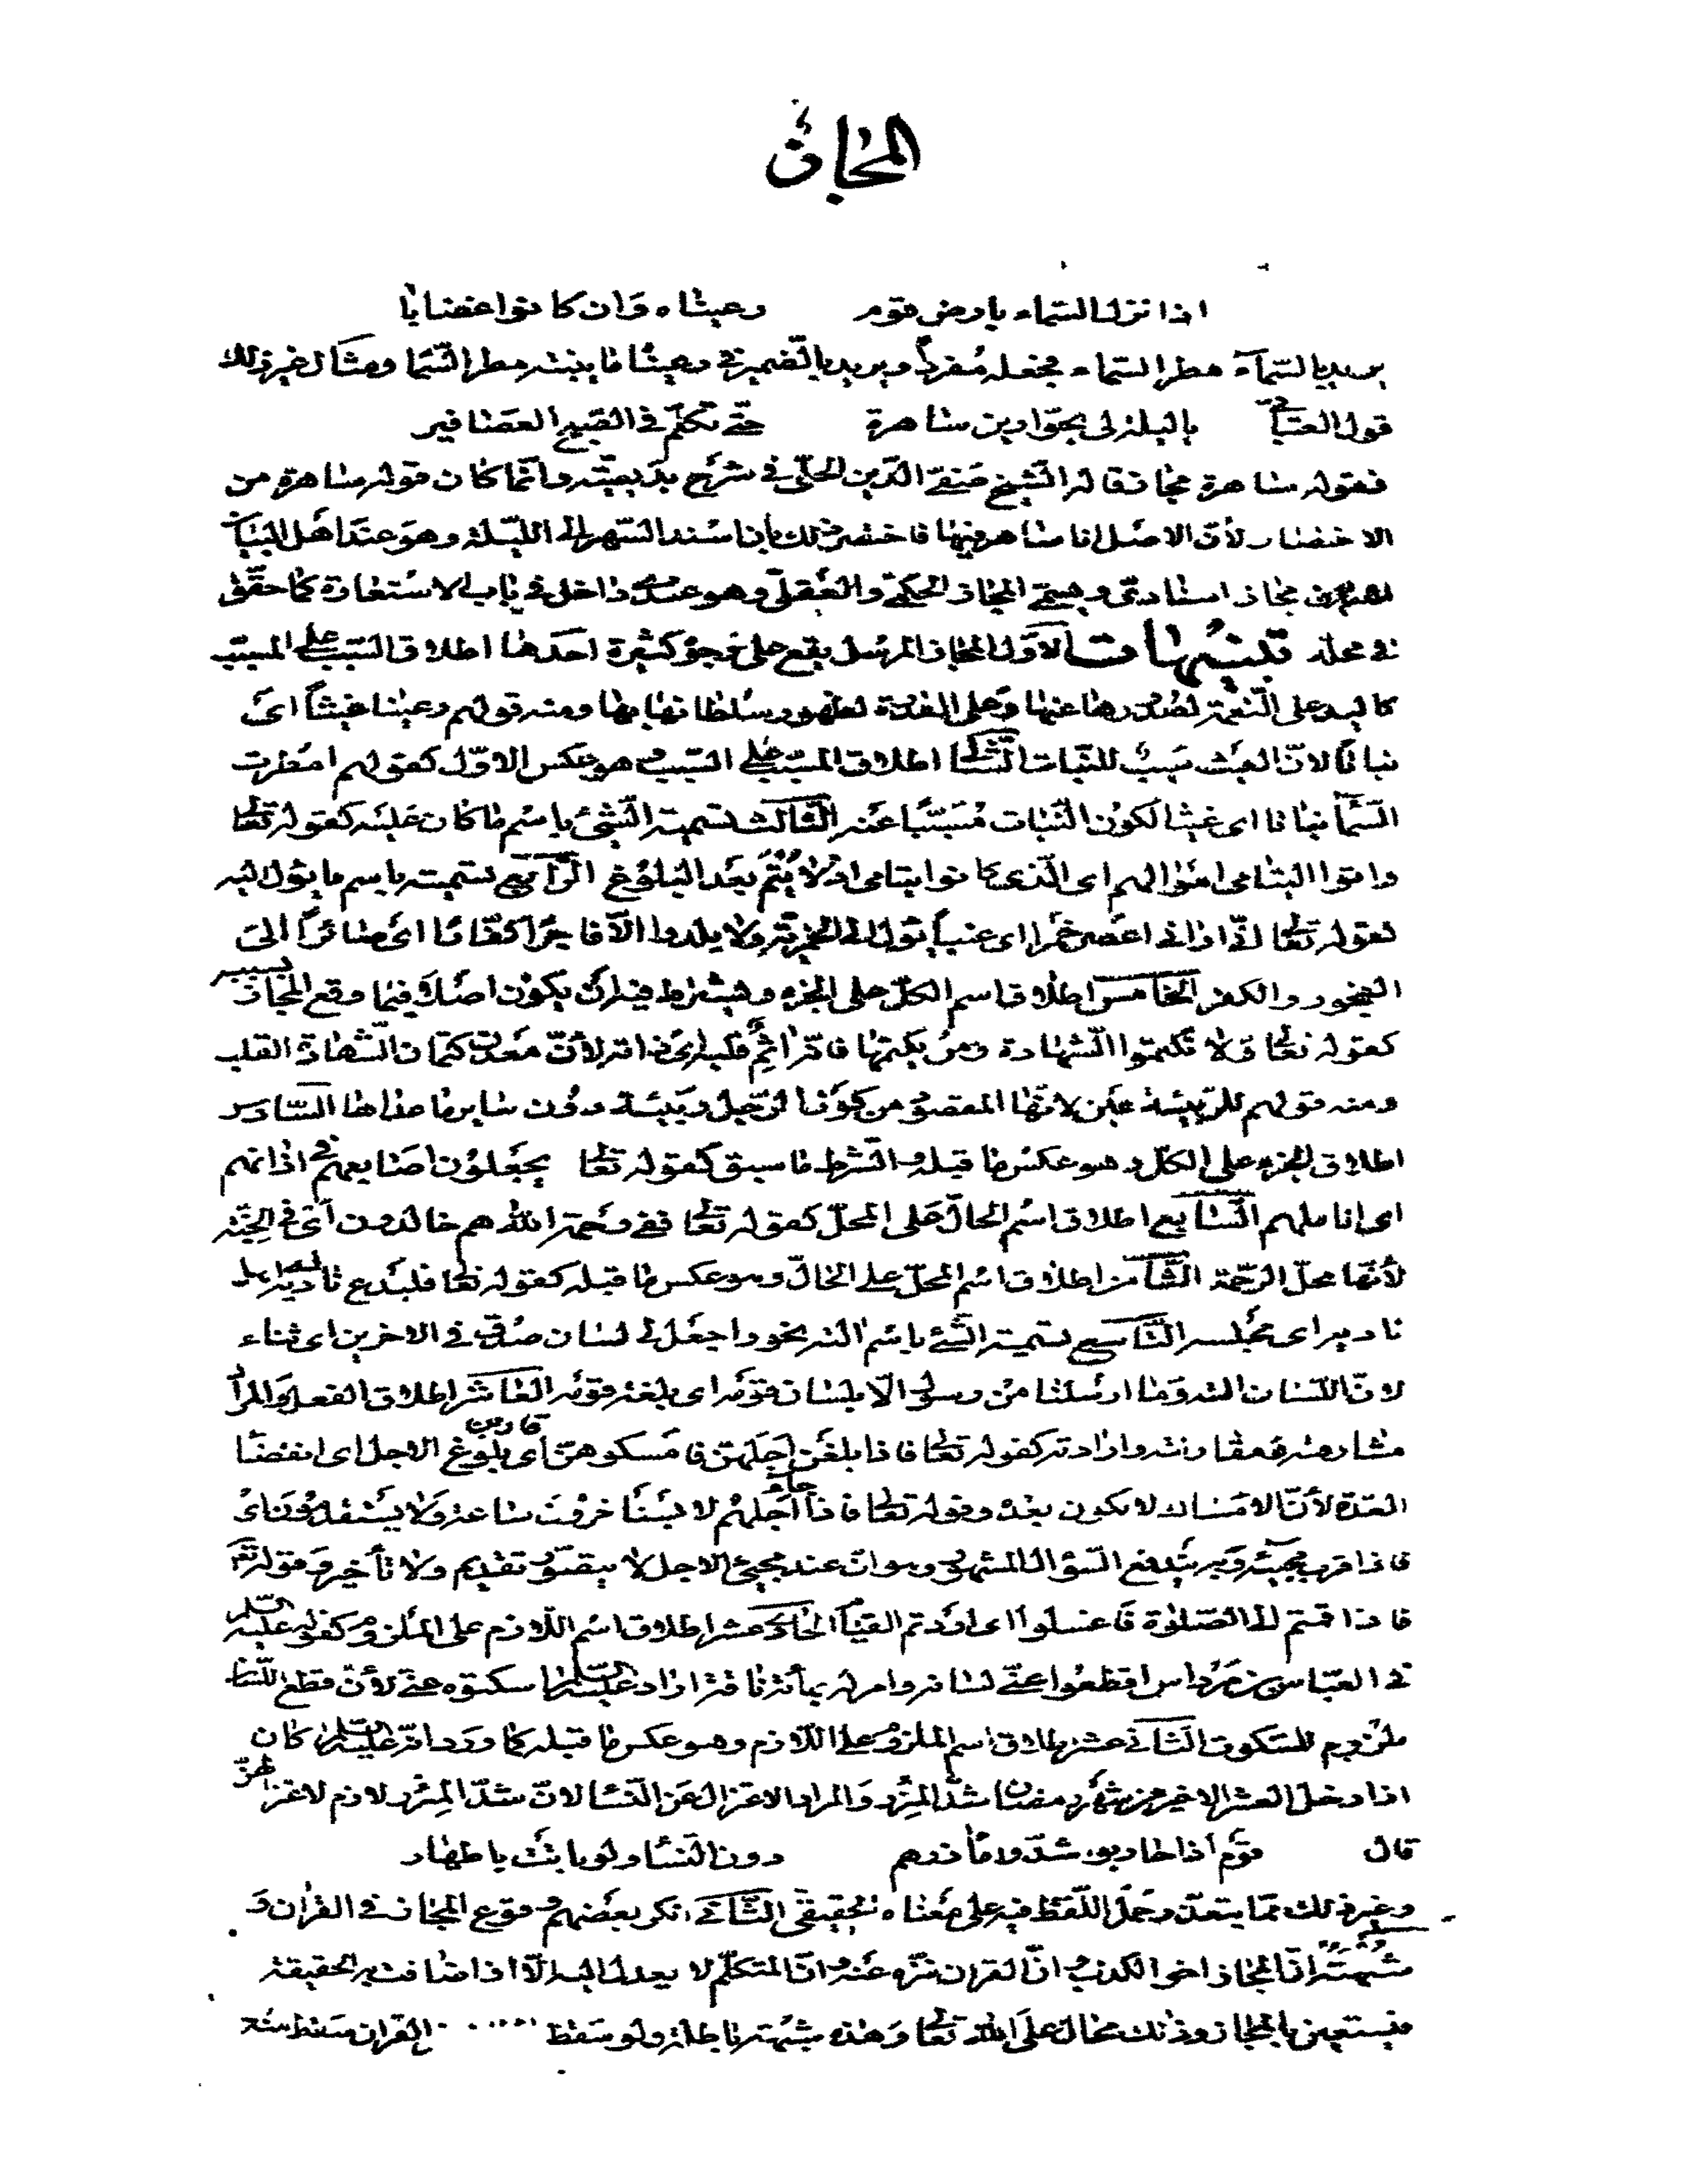 المجاز
اذا نزل السماء بارض قوم رعيناه وان كانوا غضابا
يريد بالسماء مطر السماء فجعله مفرداً ويريد بالضمير في رعيناه ما ينبته مطر السما ومثال غير ذلك
قول العتابي يا ليلة لي بحوارين ساهرة حتى تكلم في الصبح العصافير
فقوله ساهرة مجاز قاله الشيخ صفي الدين الحلي في شرح بديعيته وانما كان قوله ساهرة من
الاختصار لأن الاصل انا ساهر فيها فاختصر ذلك بأن اسند السهر الى الليلة وهو عند اهل البيان
مجاز اسنادي ويسمى المجاز الحكمي والعقلي وهو عند داخل في باب الاستعارة كما حقق
في محله تنبيهات الاول المجاز المرسل يقع على وجوه كثيرة احدها اطلاق السبب على المسبب
كاليد على النعمة لصدورها عنها وعلى القدرة لظهور سلطانها بها ومنه قولهم رعينا غيثاً اى
نباتاً لان الغيث سبب للنبات الثاني اطلاق المسبب على السبب هو عكس الاول كقولهم امطرت
السما نباتا اى غيثا لكون النبات مسبباً عنه الثالث تسمية الشئ باسم ما كان عليه كقوله تعالى
واتوا اليتامى اموالهم اى الذى كانوا يتامى اذ لا يتم بعد البلوغ الرابع تسميته باسم ما يؤل اليه
كقوله تعالى انى ارانى اعصر خمرا اى عنباً يؤل الى الخمرية ولا يلدوا الا فاجرا كفارا اى صائرا الى
الفجور والكفر الخامس اطلاق اسم الكل على الجزء ويشترط فيه ان يكون اصلا فيما وقع المجاز بسببه
كقوله تعالى ولا تكتموا الشهادة ومن يكتمها فانه اثم قلبه لأن معدن كتمان الشهادة القلب
ومنه قولهم للربيئة عين لانها المقصود من كون الرجل ربيئة دون ساير ما عداها السادس
اطلاق الجزء على الكل وهو عكس ما قبله والشرط ما سبق كقوله تعالى يجعلون اصابعهم فى اذانهم
اى اناملهم السابع اطلاق اسم الحال على المحل كقوله تعالى ففى رحمة الله هم خالدون اى فى الجنة
لأنها محل الرحمة الثامن اطلاق اسم المحل على الحال وهو عكس ما قبله كقوله تعالى فليدع ناديه اى اهل
ناديه اى مجلسه التاسع تسمية الشئ باسم الته نحو واجعل لى لسان صدق فى الاخرين اى ثناء
لان اللسان الته وما ارسلنا من رسول الا بلسان قومه اى بلغة قومه العاشر اطلاق الفعل والمراد
مشارفته ومقارنته وارادته كقوله تعالى فاذا بلغن اجلهن فامسكوهن اى قاربن بلوغ الاجل اى انقضا
العدة لأن الامساك لا يكون بعده وقوله تعالى فاذا جاء اجلهم لا يستأخرون ساعة ولا يستقدمون اى
فاذا قرب مجيئه وبه يندفع السؤال المشهور وهو ان عند مجيئ الاجل لا يتصور تقديم ولا تأخير وقوله تعالى
فاذا قمتم الى الصلوة فاغسلوا اى اردتم القيام الحادى عشر اطلاق اسم اللازم على الملزوم كقوله عليه السلم
فى العباس بن مرداس اقطعوا عنى لسانه وامر له بمأة ناقة اراد عليه السلم اسكتوه عنى لأن قطع اللسان
ملزوم للسكوت الثانى عشر اطلاق اسم الملزوم على اللازم وهو عكس ما قبله كما ورد انه عليه السلم كان
اذا دخل العشر الاخير من شهر رمضان شد المئزر والمراد الاعتزال عن النسا لان شد المئزر لازم لاعتزالهن
قال قوم اذا حاربوا شدوا مأزرهم دون النساء ولو باتت باطهار
وغير ذلك مما يتعذر حمل اللفظ فيه على معناه الحقيقى الثانى انكر بعضهم وقوع المجاز فى القران و
شبهته ان المجاز اخو الكذب وان القران منزه عنه وان المتكلم لا يعدل اليه الا اذا ضاقت به الحقيقة
فيستعين بالمجاز وذلك محال على الله تعالى وهذه شبهة باطلة ولو سقط ..... القران سقط منه